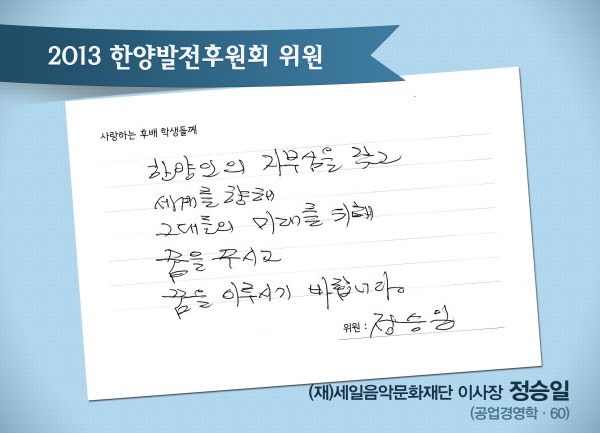 2013 한양발전후원회 위원
사랑하는 후배 학생들께
한양인의 자부심을 갖고
세계를 향해
그대들의 미래를 위해
꿈을 꾸시고
꿈을 이루시기 바랍니다.
위원 : 정승일
(재)세일음악문화재단 이사장 정승일
(공업경영학 · 60)